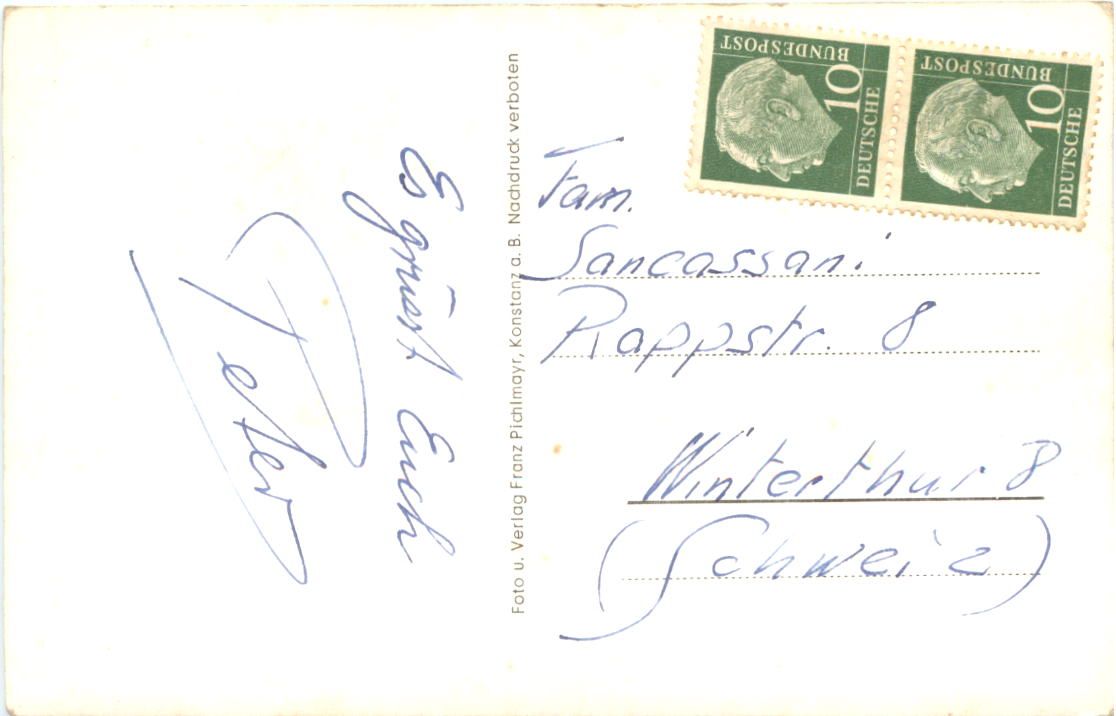 Es grüsst Euch
Peter
Foto u. Verlag Franz Pichlmayr, Konstanz a. B. Nachdruck verboten
DEUTSCHE
BUNDESPOST
10
DEUTSCHE
BUNDESPOST
10
Fam.
Sancassani
Rappstr. 8
Winterthur 8
(Schweiz)